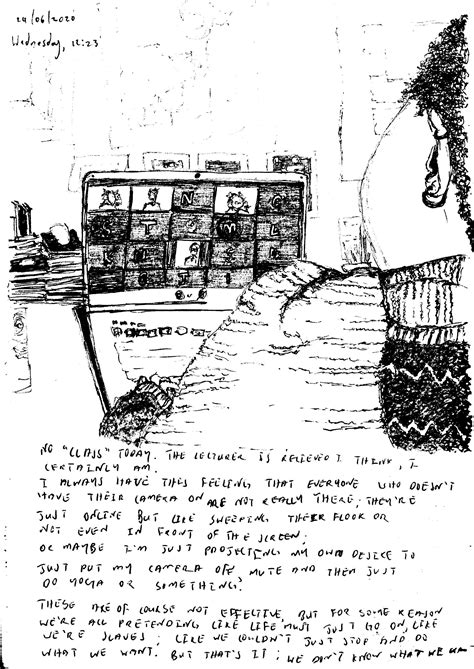 24/06/2020
Wednesday, 12:23
N G
S T J M
L
S J I
NO "CLASS" TODAY. THE LECTURER IS RELIEVED I THINK, I
CERTAINLY AM.
I ALWAYS HAVE THIS FEELING THAT EVERYONE WHO DOESN'T
HAVE THEIR CAMERA ON ARE NOT REALLY THERE; THEY'RE
JUST ONLINE BUT LIKE SWEEPING THEIR FLOOR OR
NOT EVEN IN FRONT OF THE SCREEN;
OR MAYBE I'M JUST PROJECTING MY OWN DESIRE TO
JUST PUT MY CAMERA OFF MUTE AND THEN JUST
DO YOGA OR SOMETHING.
THESE ARE OF COURSE NOT EFFECTIVE, BUT FOR SOME REASON
WE'RE ALL PRETENDING LIKE LIFE MUST JUST GO ON, LIKE
WE'RE SLAVES; LIKE WE COULDN'T JUST STOP AND DO
WHAT WE WANT. BUT THAT'S IT; WE DON'T KNOW WHAT WE